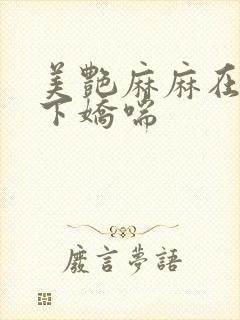 美艷麻麻在
下嬌喘
廢言夢語